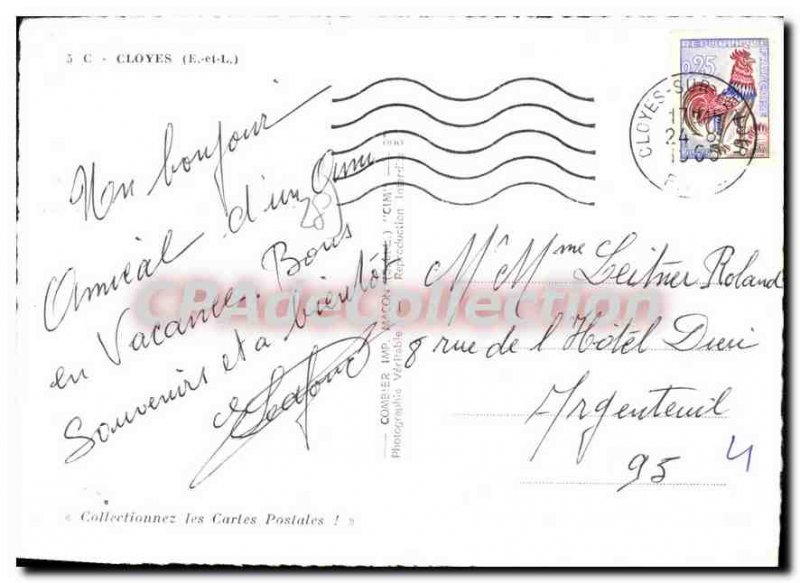 5 C - CLOYES (E.-et-L.)
Un bonjour
Amical d'un Ami
en Vacances. Bons
Souvenirs et a bientôt
289
« Collectionnez les Cartes Postales ! »
COMBIER IMP. MACON "CIM"
Photographie Véritable Reproduction Interdite
REPUBLIQUE FRANÇAISE
0,25
CLOYES-SUR
17H
24
Mr Mme Leitner Roland
8 rue de l'Hôtel Dieu
Argenteuil
95
4
CPAdeCollection